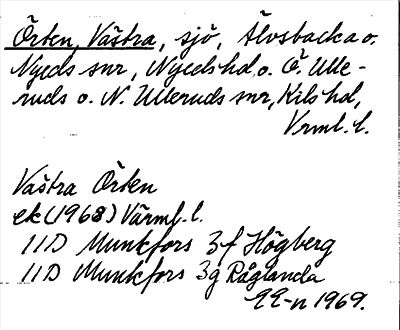 Örten, Västra, sjö, Älvsbacka o.
Nyeds snr, Nyeds hd. o. Ö. Ulle-
ruds o. N. Ulleruds snr, Kils hd,
Vrml. l.
Västra Örten
ek (1968) Värml. l.
11D Munkfors 3f Högberg
11D Munkfors 3g Råglanda
1969.